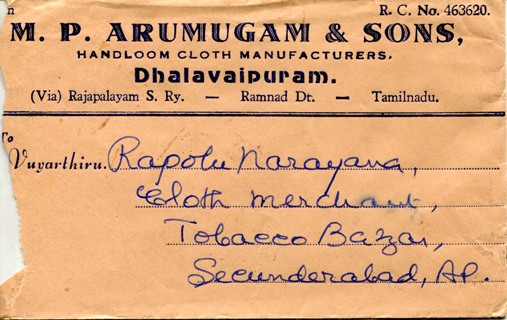 R. C. No. 463620.
M. P. ARUMUGAM & SONS,
HANDLOOM CLOTH MANUFACTURERS,
Dhalavaipuram.
(Via) Rajapalayam S. Ry. — Ramnad Dt. — Tamilnadu.
To
Vuyarthiru. Rapolu Narayana,
Cloth merchant,
Tobacco Bazar,
Secunderabad, AP.